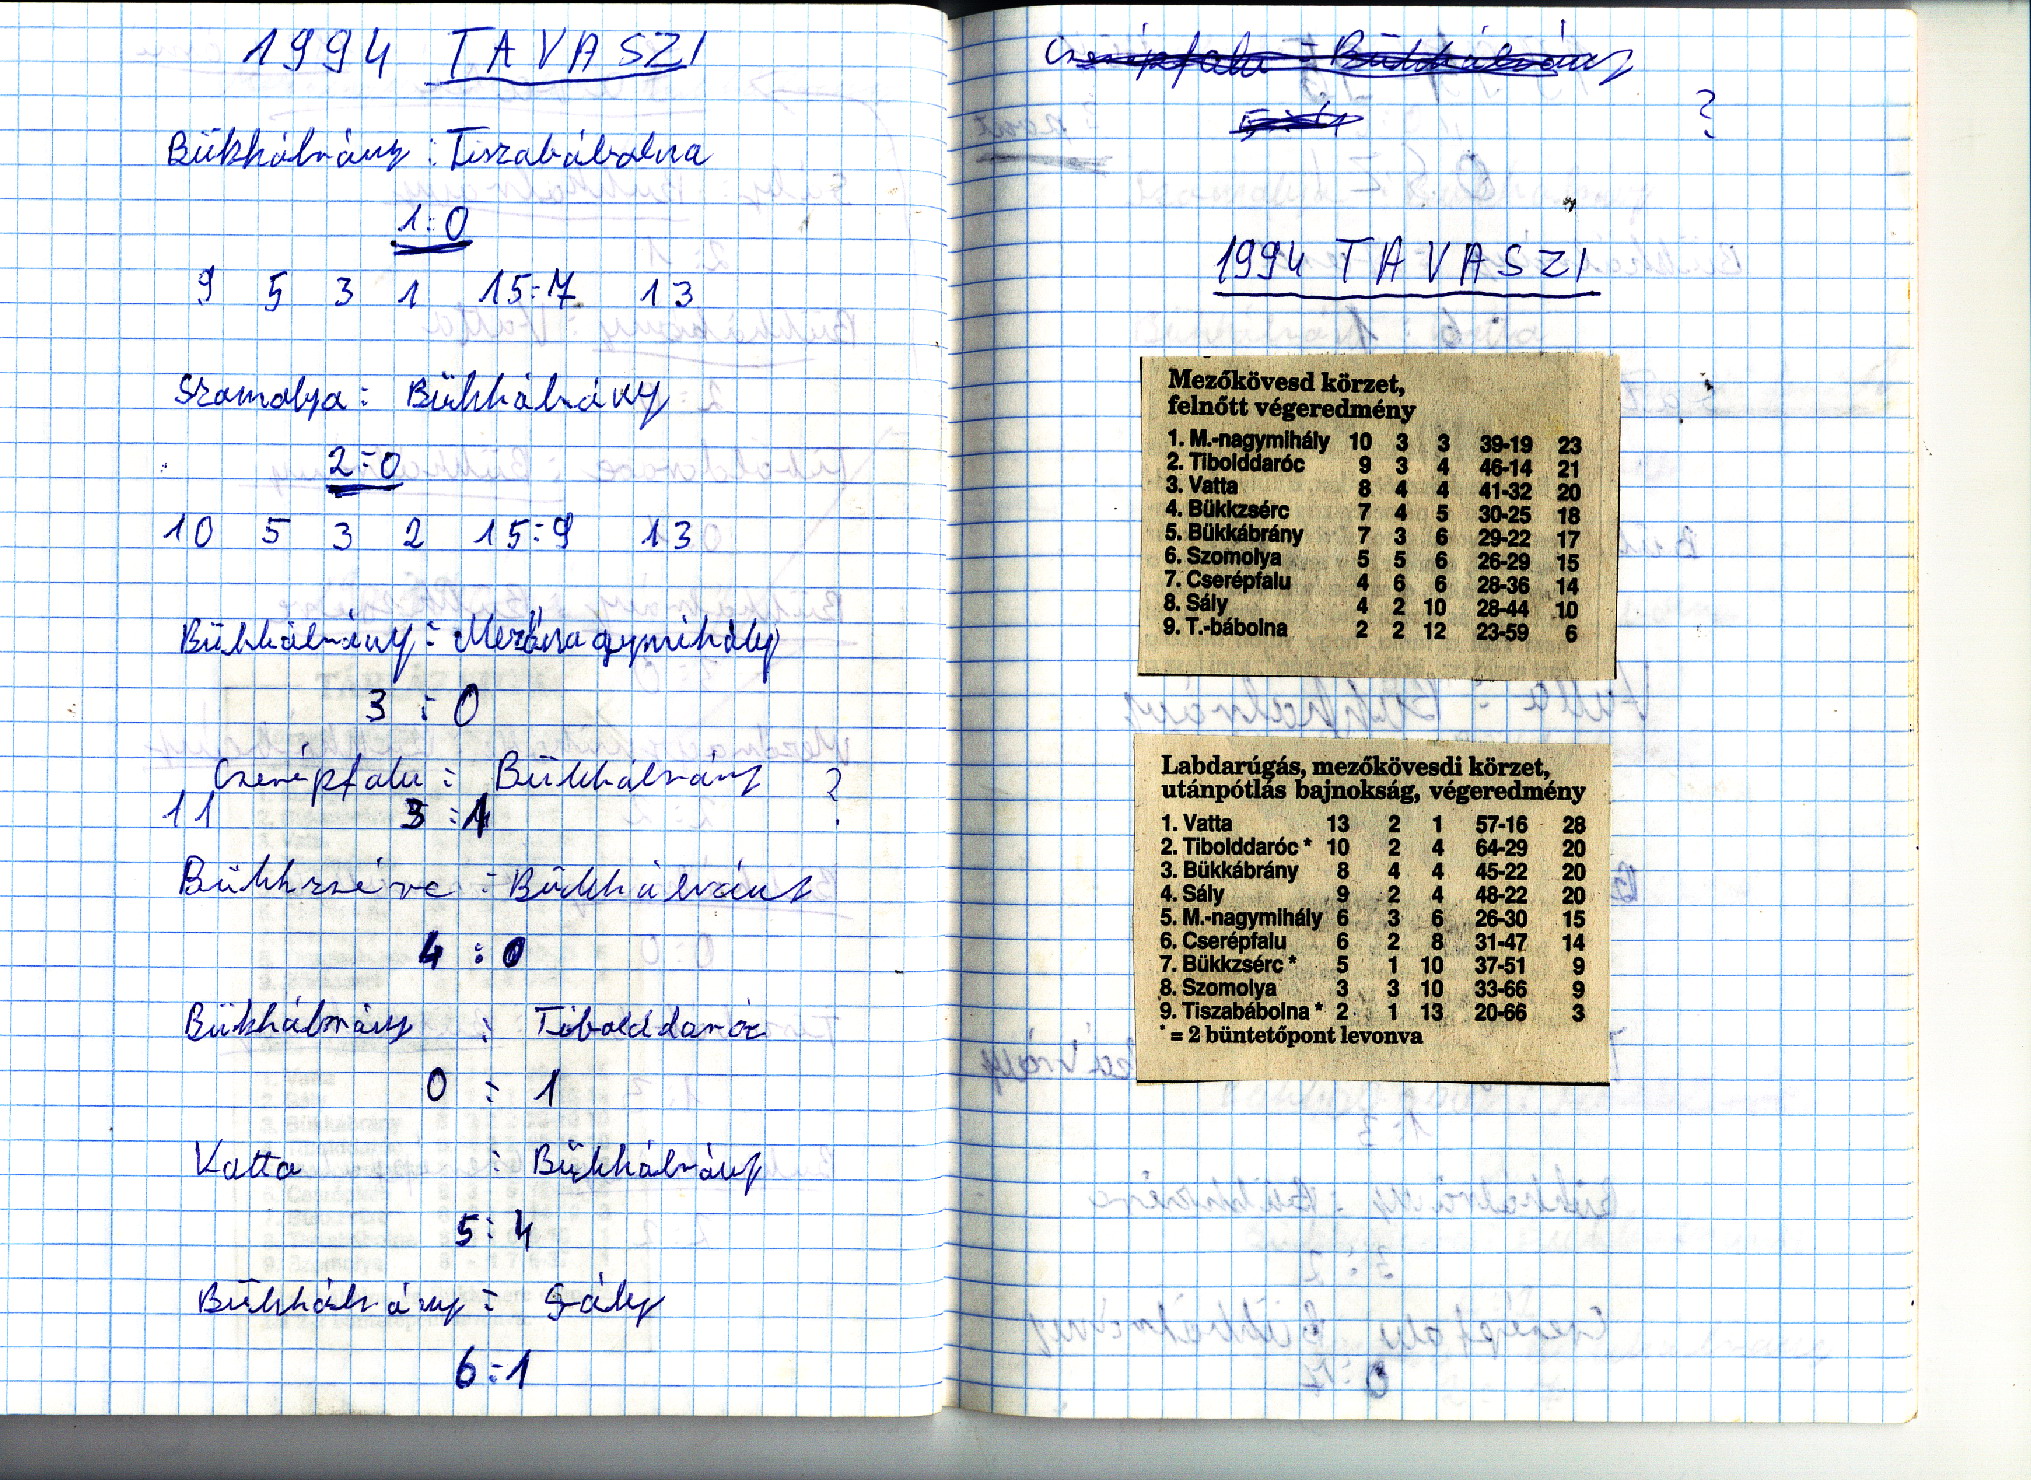 1994 TAVASZI
Bükkábrány : Tiszabábolna
1:0
9 5 3 1 15:7 13
Szomolya : Bükkábrány
2:0
10 5 3 2 15:9 13
Bükkábrány : Mezőnagymihály
3 : 0
Cserépfalu : Bükkábrány ?
11 3 : 1
Bükkzsérc : Bükkábrány
4 : 0
Bükkábrány : Tibolddaróc
0 : 1
Vatta : Bükkábrány
5:4
Bükkábrány : Sály
6:1
Cserépfalu : Bükkábrány
?
1994 TAVASZI
Mezőkövesd körzet,
felnőtt végeredmény
1. M.-nagymihály 10 3 3 39-19 23
2. Tibolddaróc 9 3 4 46-14 21
3. Vatta 8 4 4 41-32 20
4. Bükkzsérc 7 4 5 30-25 18
5. Bükkábrány 7 3 6 29-22 17
6. Szomolya 5 5 6 26-29 15
7. Cserépfalu 4 6 6 28-36 14
8. Sály 4 2 10 28-44 10
9. T.-bábolna 2 2 12 23-59 6
Labdarúgás, mezőkövesdi körzet,
utánpótlás bajnokság, végeredmény
1. Vatta 13 2 1 57-16 28
2. Tibolddaróc * 10 2 4 64-29 20
3. Bükkábrány 8 4 4 45-22 20
4. Sály 9 2 4 48-22 20
5. M.-nagymihály 6 3 6 26-30 15
6. Cserépfalu 6 2 8 31-47 14
7. Bükkzsérc * 5 1 10 37-51 9
8. Szomolya 3 3 10 33-66 9
9. Tiszabábolna * 2 1 13 20-66 3
* = 2 büntetőpont levonva